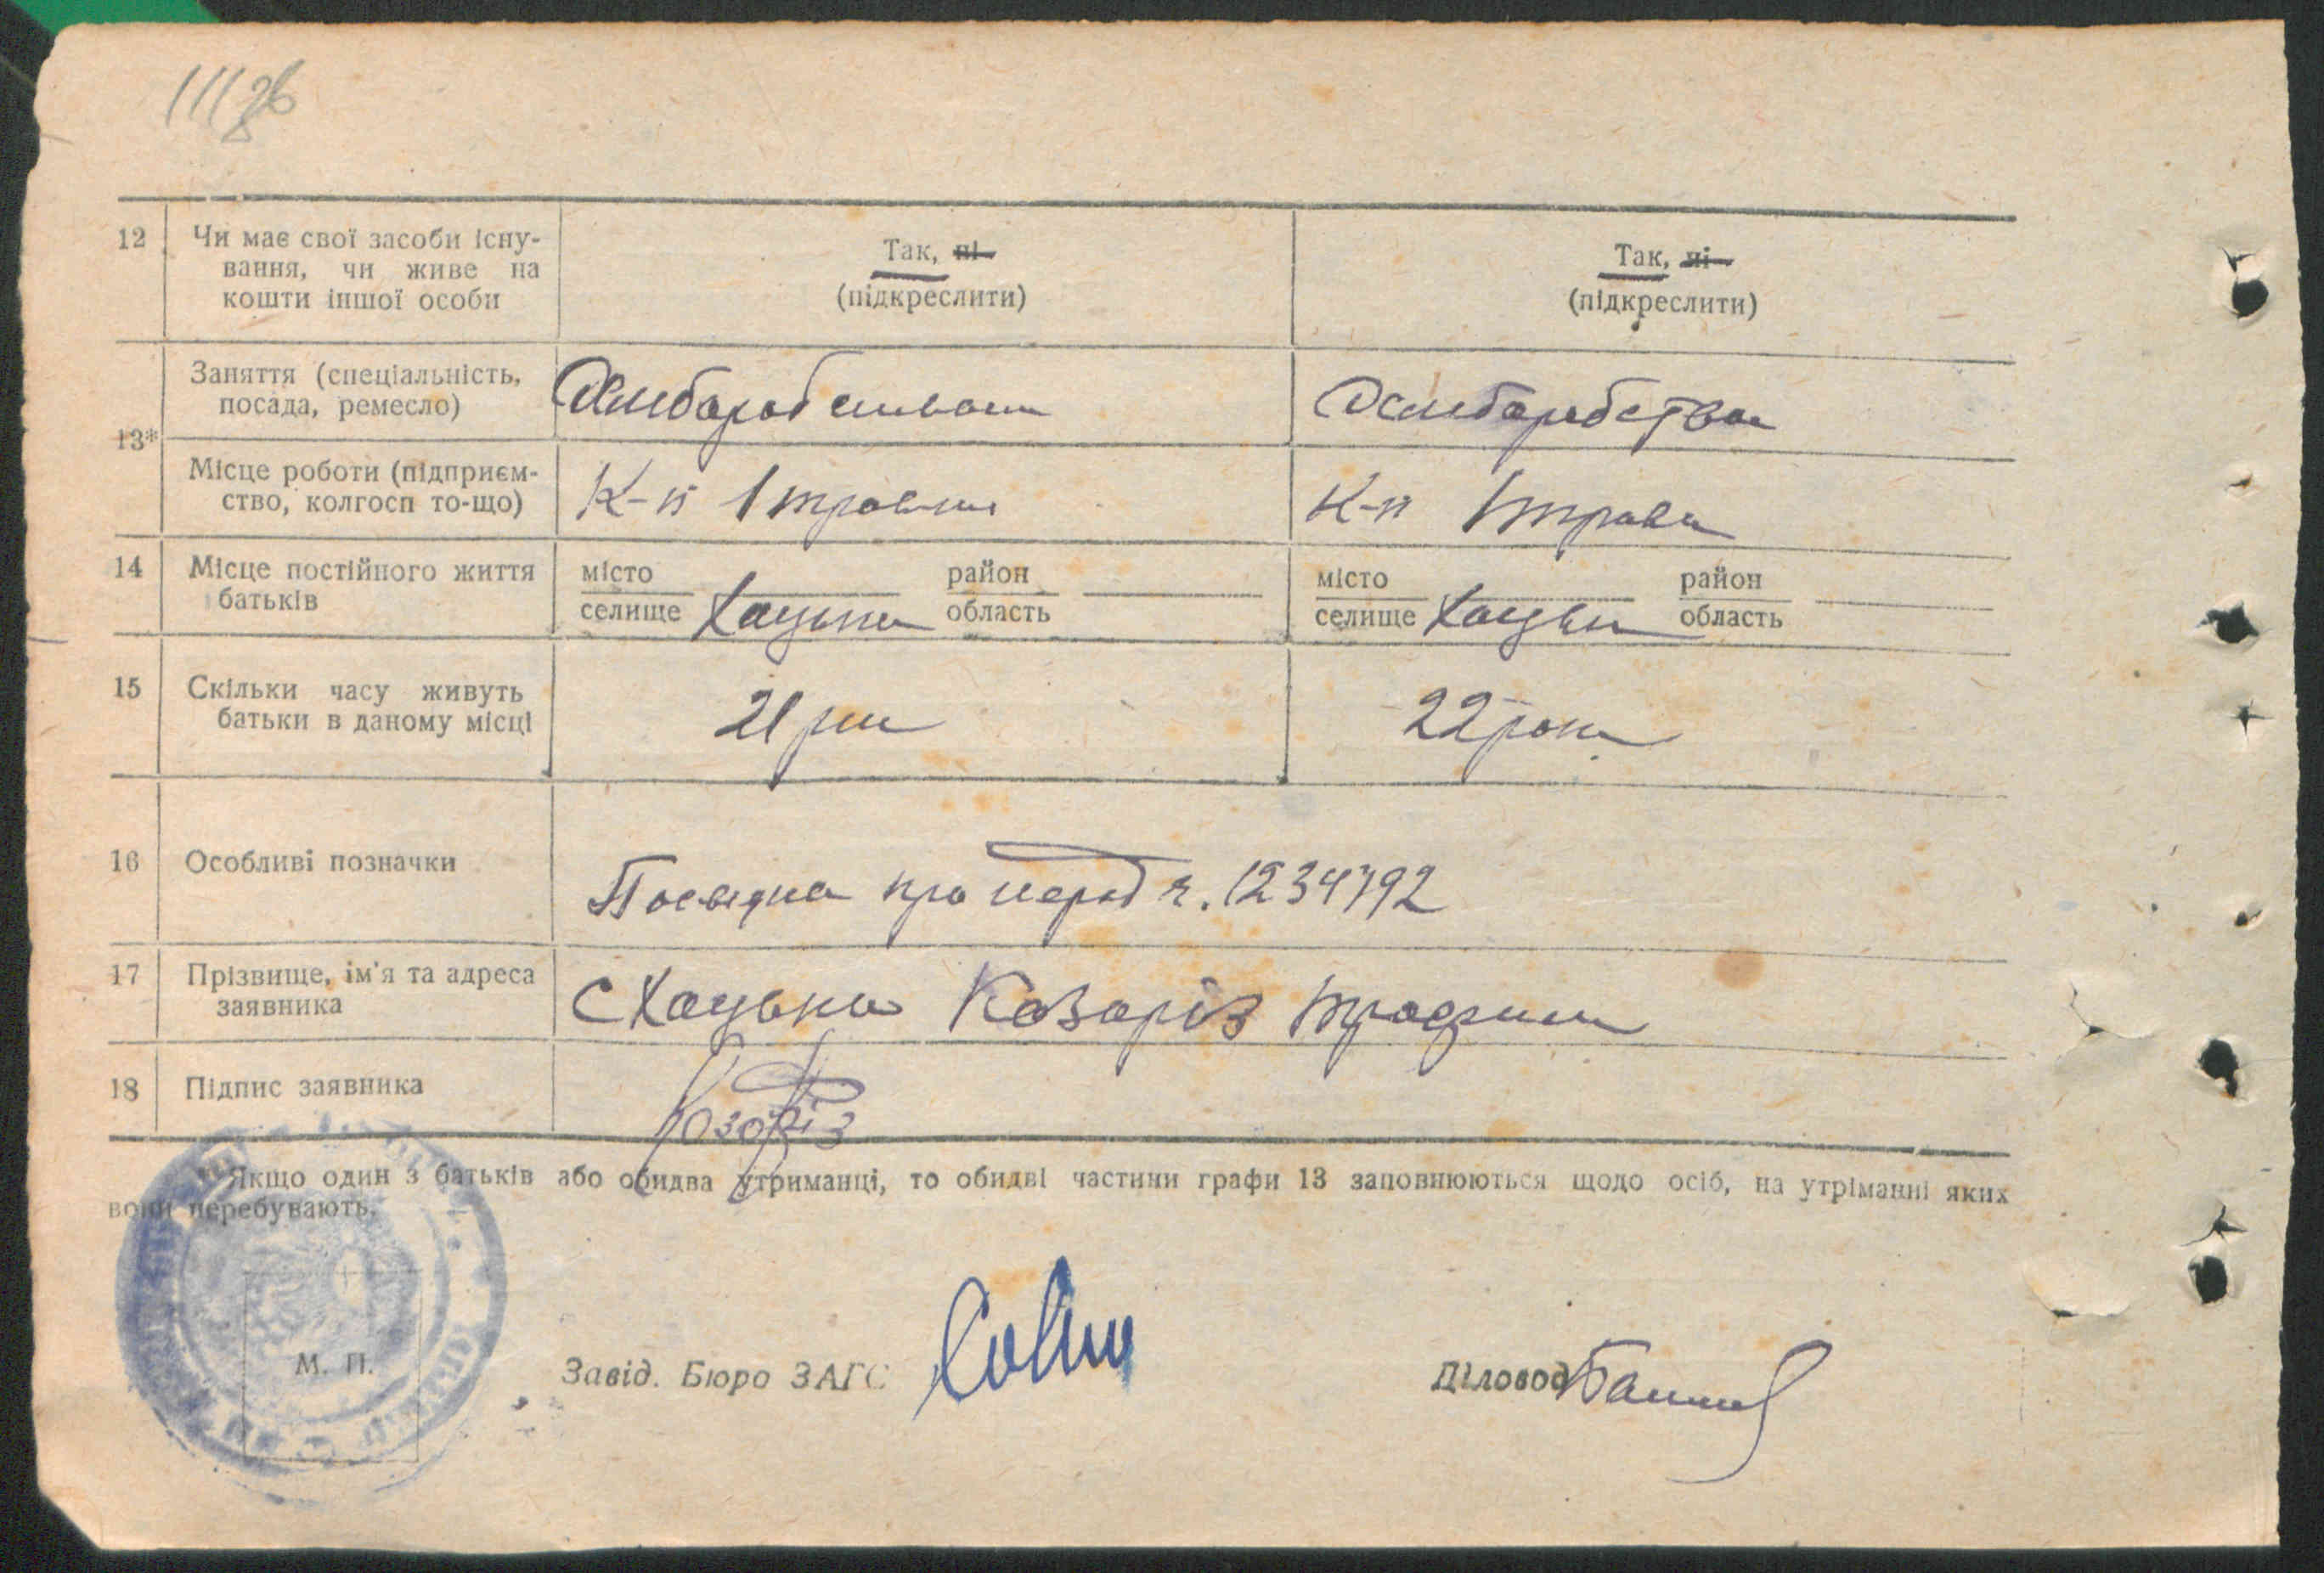 12 Чи має свої засоби існу-
вання, чи живе на
кошти іншої особи
Так, ні
(підкреслити)
Так, ні
(підкреслити)
13*
Заняття (спеціальність,
посада, ремесло)
Місце роботи (підприєм-
ство, колгосп то-що)
К-п 1 травня
К-п 1 трав
14 Місце постійного життя
батьків
місто район
селище Хацьки область
місто район
селище Хацьки область
15 Скільки часу живуть
батьки в даному місці
21 рік
22 роки
16 Особливі позначки
Посвідка про народ ч. 1234792
17 Прізвище, ім'я та адреса
заявника
С Хацьки Козоріз Трофим
18 Підпис заявника
Козоріз
* Якщо один з батьків або обидва утриманці, то обидві частини графи 13 заповнюються щодо осіб, на утріманні яких
вони перебувають.
М. П.
Завід. Бюро ЗАГС
Діловод